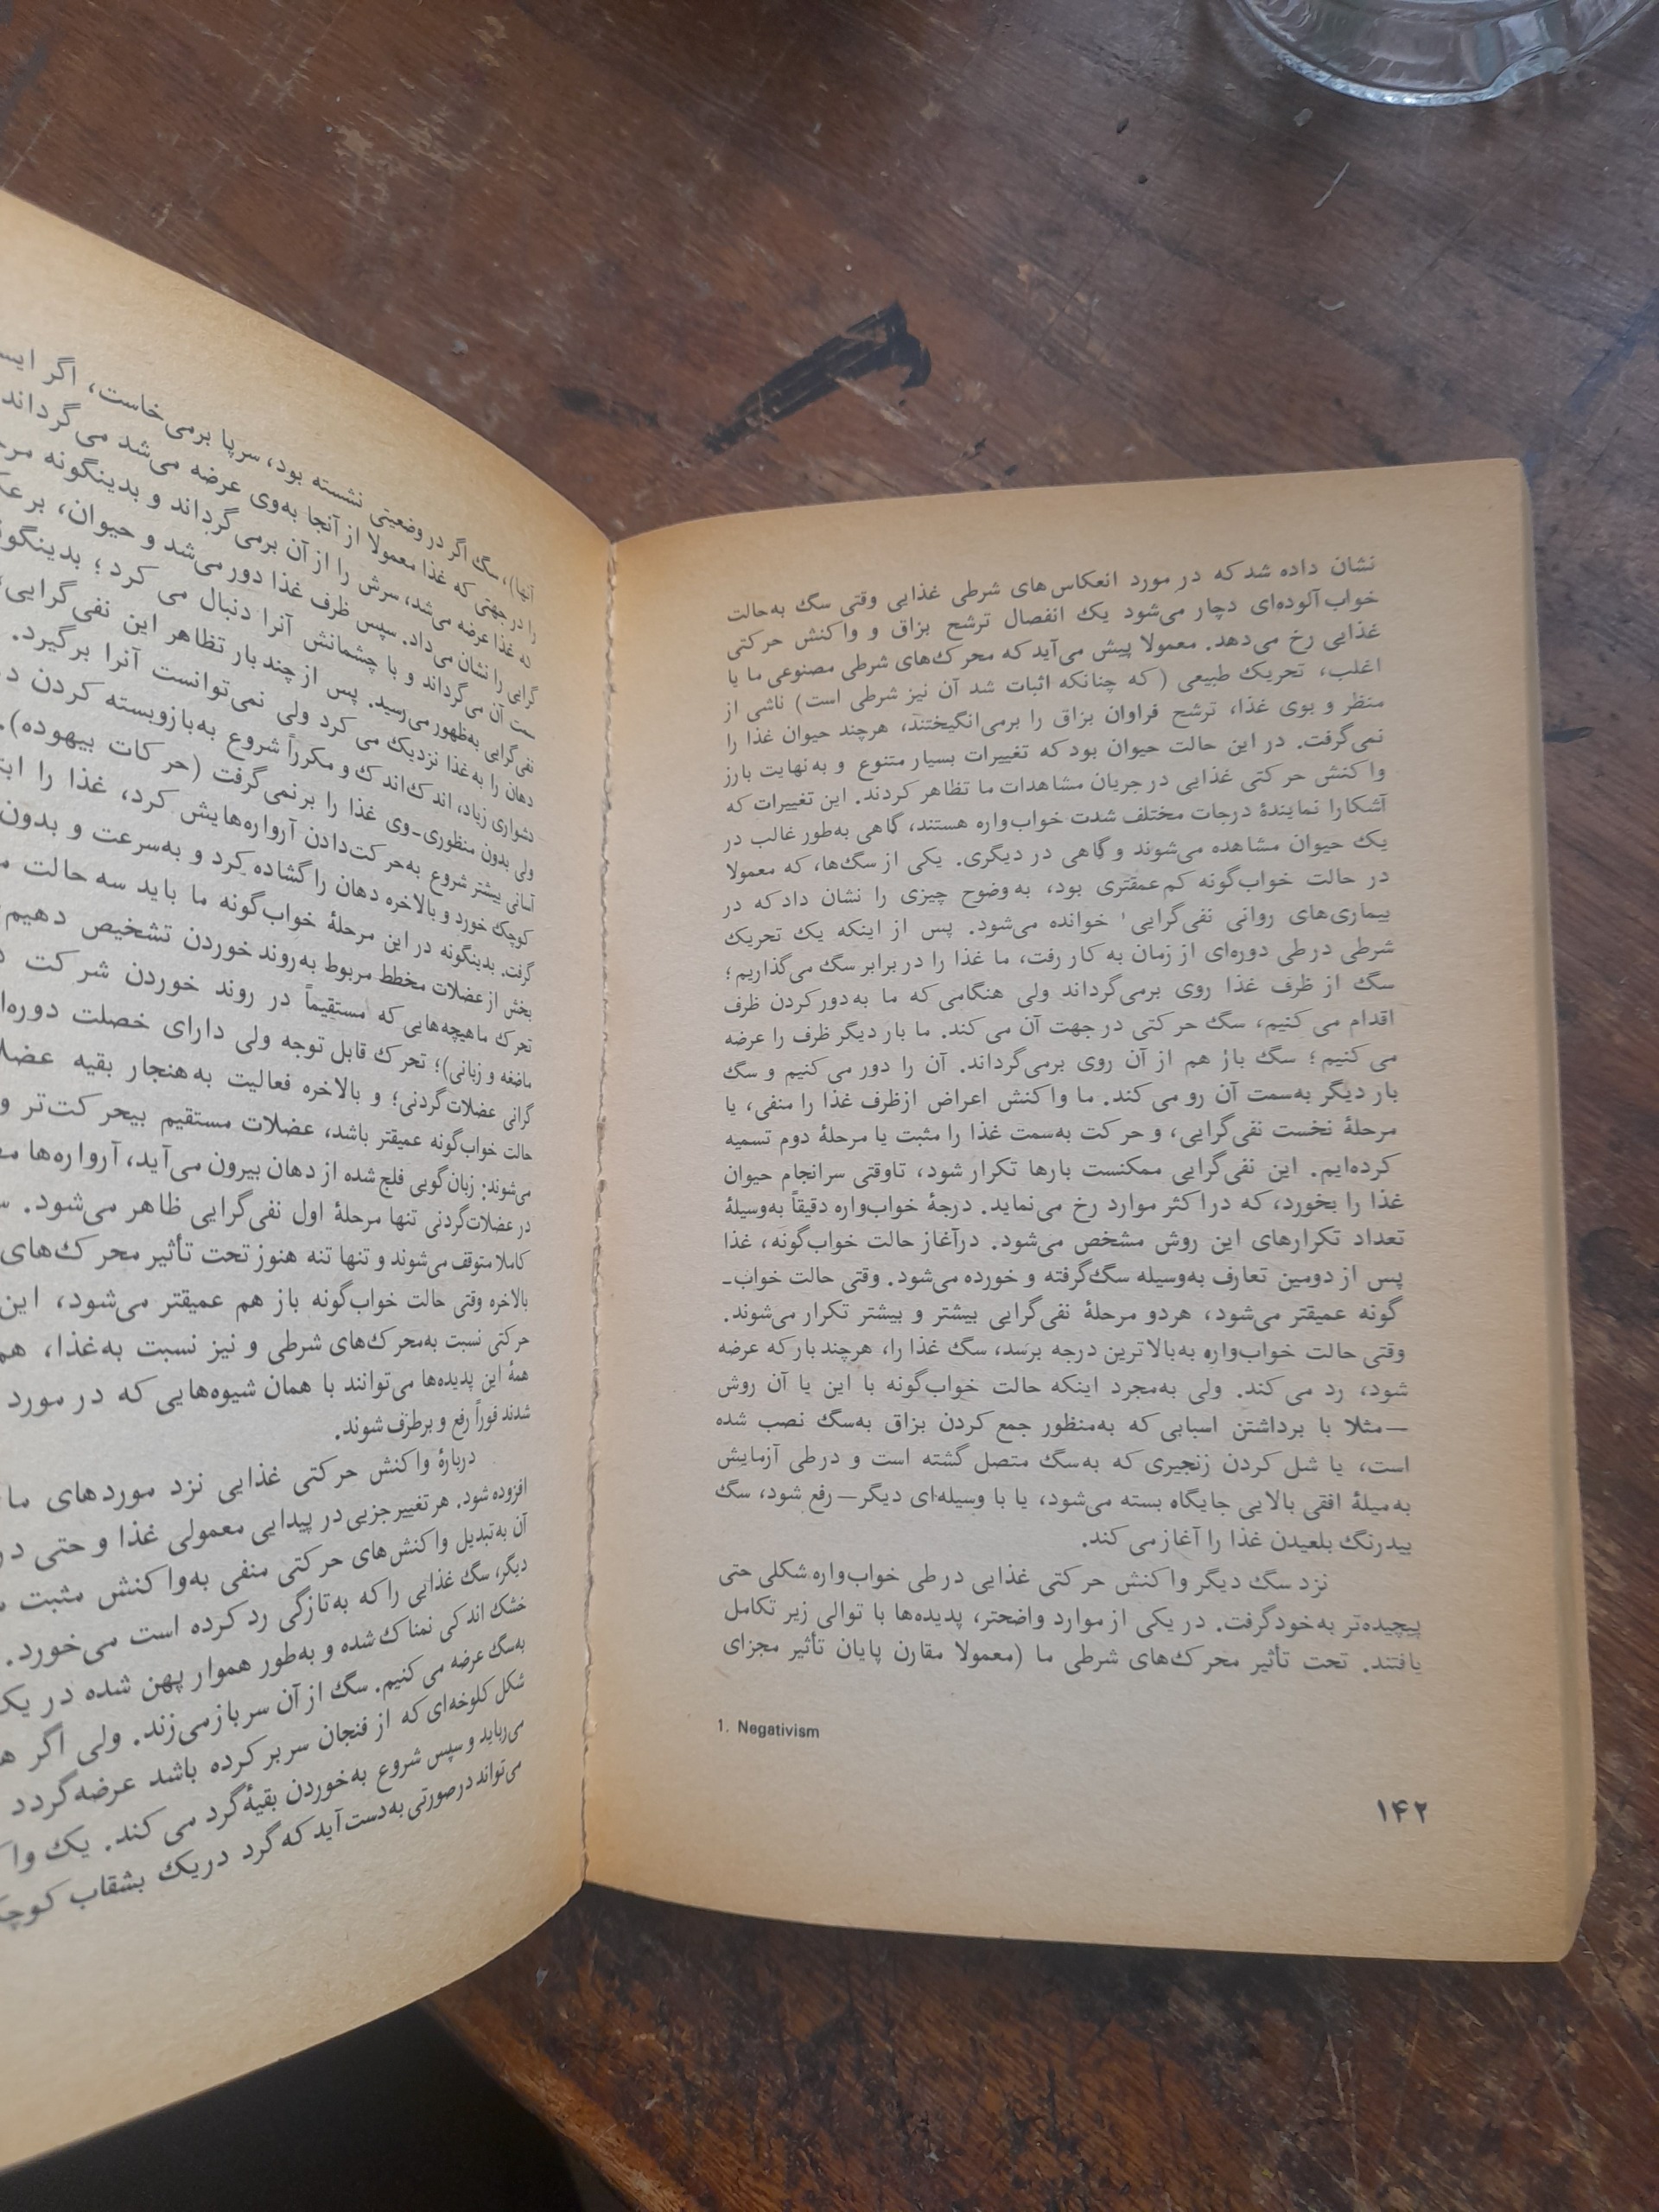 نشان داده شد که در مورد انعکاس‌های شرطی غذایی وقتی سگ به‌حالت
خواب‌آلوده‌ای دچار می‌شود یک انفصال ترشح بزاق و واکنش حرکتی
غذایی رخ می‌دهد. معمولا پیش می‌آید که محرک‌های شرطی مصنوعی ما یا
اغلب، تحریک طبیعی (که چنانکه اثبات شد آن نیز شرطی است) ناشی از
منظر و بوی غذا، ترشح فراوان بزاق را برمی‌انگیختند، هرچند حیوان غذا را
نمی‌گرفت. در این حالت حیوان بود که تغییرات بسیار متنوع و به‌نهایت بارز
واکنش حرکتی غذایی در جریان مشاهدات ما تظاهر کردند. این تغییرات که
آشکارا نمایندهٔ درجات مختلف شدت خواب‌واره هستند، گاهی به‌طور غالب در
یک حیوان مشاهده می‌شوند و گاهی در دیگری. یکی از سگ‌ها، که معمولا
در حالت خواب‌گونه کم‌عمقتری بود، به‌وضوح چیزی را نشان داد که در
بیماری‌های روانی نفی‌گرایی۱ خوانده می‌شود. پس از اینکه یک تحریک
شرطی درطی دوره‌ای از زمان به کار رفت، ما غذا را در برابر سگ می‌گذاریم؛
سگ از ظرف غذا روی برمی‌گرداند ولی هنگامی که ما به‌دور کردن ظرف
اقدام می‌کنیم، سگ حرکتی در جهت آن می‌کند. ما بار دیگر ظرف را عرضه
می‌کنیم؛ سگ باز هم از آن روی برمی‌گرداند. آن را دور می‌کنیم و سگ
بار دیگر به‌سمت آن رو می‌کند. ما واکنش اعراض ازظرف غذا را منفی، یا
مرحلهٔ نخست نفی‌گرایی، و حرکت به‌سمت غذا را مثبت یا مرحلهٔ دوم تسمیه
کرده‌ایم. این نفی‌گرایی ممکنست بارها تکرار شود، تاوقتی سرانجام حیوان
غذا را بخورد، که دراکثر موارد رخ می‌نماید. درجهٔ خواب‌واره دقیقاً به‌وسیلهٔ
تعداد تکرارهای این روش مشخص می‌شود. درآغاز حالت خواب‌گونه، غذا
پس از دومین تعارف به‌وسیله سگ‌گرفته و خورده می‌شود. وقتی حالت خواب-
گونه عمیقتر می‌شود، هردو مرحلهٔ نفی‌گرایی بیشتر و بیشتر تکرار می‌شوند.
وقتی حالت خواب‌واره به‌بالاترین درجه برسد، سگ غذا را، هرچند بار که عرضه
شود، رد می‌کند. ولی به‌مجرد اینکه حالت خواب‌گونه با این یا آن روش
—مثلا با برداشتن اسبابی که به‌منظور جمع کردن بزاق به‌سگ نصب شده
است، یا شل کردن زنجیری که به‌سگ متصل گشته است و درطی آزمایش
به‌میلهٔ افقی بالایی جایگاه بسته می‌شود، یا با وسیله‌ای دیگر— رفع شود، سگ
بیدرنگ بلعیدن غذا را آغاز می‌کند.
نزد سگ دیگر واکنش حرکتی غذایی درطی خواب‌واره شکلی حتی
پیچیده‌تر به‌خودگرفت. در یکی از موارد واضحتر، پدیده‌ها با توالی زیر تکامل
یافتند. تحت تأثیر محرک‌های شرطی ما (معمولا مقارن پایان تأثیر مجزای
1. Negativism
۱۴۲
آنها)، سگ اگر در وضعیتی نشسته بود، سرپا برمی‌خاست، اگر
را در جهتی که غذا معمولا از آنجا به‌وی عرضه می‌شد می‌گرداند
که غذا عرضه می‌شد، سرش را از آن برمی‌گرداند و بدینگونه
گرایی را نشان می‌داد. سپس ظرف غذا دور می‌شد و حیوان،
سمت آن می‌گرداند و با چشمانش آنرا دنبال می‌کرد؛
نفی‌گرایی به‌ظهور می‌رسید. پس از چند بار تظاهر این نفی‌گرایی،
دهان را به‌غذا نزدیک می‌کرد ولی نمی‌توانست آنرا برگیرد.
دشواری زیاد، اندک‌اندک و مکرراً شروع به‌بازوبسته کردن
ولی بدون منظوری-وی غذا را برنمی‌گرفت (حرکات بیهوده).
آسانی بیشتر شروع به‌حرکت‌دادن آرواره‌هایش کرد، غذا را
کوچک خورد و بالاخره دهان را گشاده کرد و به‌سرعت و بدون
گرفت. بدینگونه در این مرحلهٔ خواب‌گونه ما باید سه حالت
بخش از عضلات مخطط مربوط به‌روند خوردن تشخیص دهیم
تحرک ماهیچه‌هایی که مستقیماً در روند خوردن شرکت
ماضغه و زبانی)؛ تحرک قابل توجه ولی دارای خصلت
گرائی عضلات‌گردنی؛ و بالاخره فعالیت به‌هنجار بقیه
حالت خواب‌گونه عمیقتر باشد، عضلات مستقیم بیحرکت‌تر و
می‌شوند: زبان‌گویی فلج شده از دهان بیرون می‌آید، آرواره‌ها
در عضلات‌گردنی تنها مرحلهٔ اول نفی‌گرایی ظاهر می‌شود.
کاملا متوقف می‌شوند و تنها تنه هنوز تحت تأثیر محرک‌های
بالاخره وقتی حالت خواب‌گونه باز هم عمیقتر می‌شود، این
حرکتی نسبت به‌محرک‌های شرطی و نیز نسبت به‌غذا،
همهٔ این پدیده‌ها می‌توانند با همان شیوه‌هایی که در مورد
شدند فوراً رفع و برطرف شوند.
دربارهٔ واکنش حرکتی غذایی نزد موردهای ما
افزوده شود. هر تغییر جزیی در پیدایی معمولی غذا و حتی
آن به‌تبدیل واکنش‌های حرکتی منفی به‌واکنش مثبت
دیگر، سگ غذایی را که به‌تازگی رد کرده است می‌خورد.
خشک اندکی نمناک شده و به‌طور هموار پهن شده در
به‌سگ عرضه می‌کنیم. سگ از آن سر باز می‌زند. ولی اگر
شکل کلوخه‌ای که از فنجان سر بر کرده باشد عرضه‌گردد
می‌رباید و سپس شروع به‌خوردن بقیهٔ‌گرد می‌کند. یک
می‌تواند درصورتی به‌دست آید که گرد دریک بشقاب